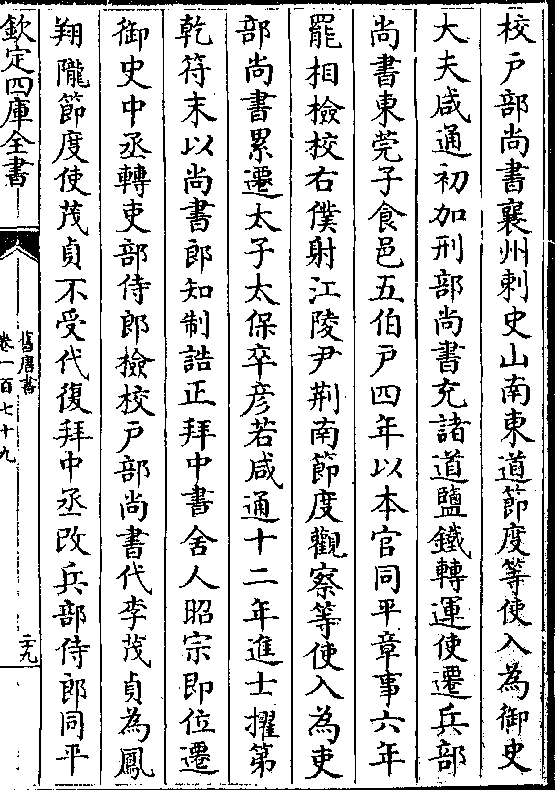 校戸部尚書襄州刺史山南東道節度等使入為御史
大夫咸通初加刑部尚書充諸道鹽鐵轉運使遷兵部
尚書東莞子食邑五伯戸四年以本官同平章事六年
罷相檢校右僕射江陵尹荆南節度觀察等使入為吏
部尚書累遷太子太保卒彦若咸通十二年進士擢第
乾符末以尚書郎知制誥正拜中書舍人昭宗即位遷
御史中丞轉吏部侍郎檢校戸部尚書代李茂貞為鳳
翔隴節度使茂貞不受代復拜中丞改兵部侍郎同平
欽定四庫全書
舊唐書
卷一百七十九
二九